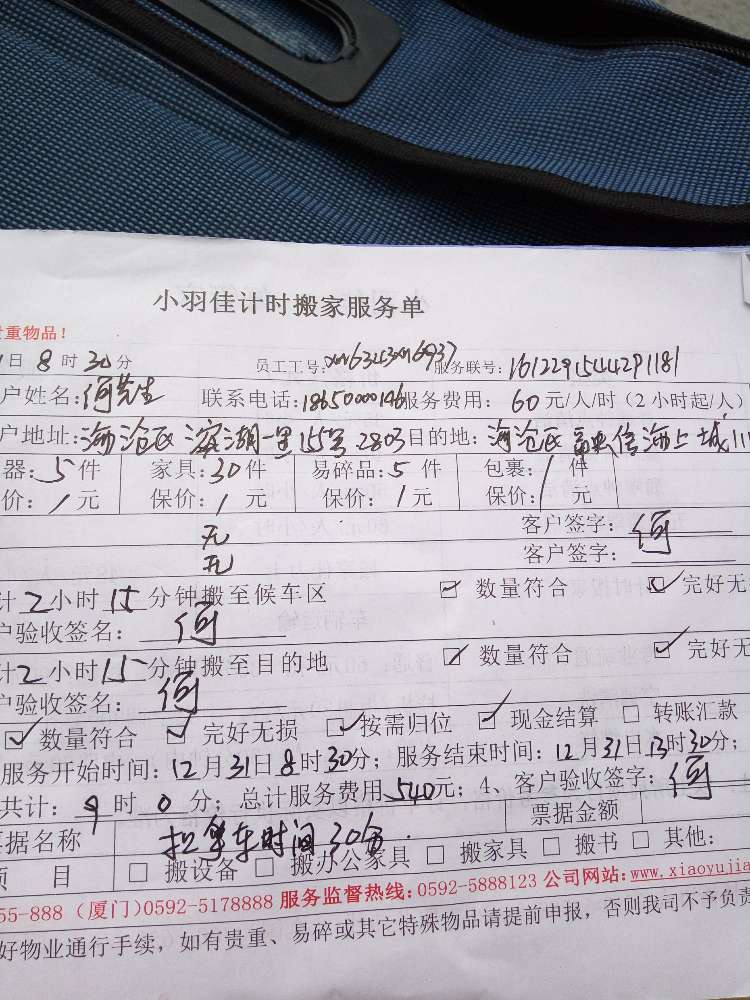 小羽佳计时搬家服务单
贵重物品！
日 8 时 30 分 员工工号： 服务联号：1612291544291181
户姓名：何先生 联系电话：18650000146 服务费用：60 元/人/时（2 小时起/人）
户地址：海沧区滨湖一里155号2803 目的地：海沧区 信海上城
器：5 件 家具：30 件 易碎品：5 件 包裹：1 件
价：1 元 保价：1 元 保价：1 元 保价： 元
无 客户签字：何
无 客户签字：
计 2 小时 15 分钟搬至候车区 ☑ 数量符合 ☑ 完好无
户验收签名：何
计 2 小时 15 分钟搬至目的地 ☑ 数量符合 ☑ 完好无
户验收签名：何
☑ 数量符合 ☑ 完好无损 ☑ 按需归位 ☑ 现金结算 □ 转账汇款
服务开始时间：12 月 31 日 8 时 30 分；服务结束时间：12 月 31 日 13 时 30 分；
共计：9 时 0 分；总计服务费用 540 元；4、客户验收签字：何
票据名称 扣 车时间30分. 票据金额
项 目 □ 搬设备 □ 搬办公家具 □ 搬家具 □ 搬书 □ 其他：
55-888（厦门）0592-5178888 服务监督热线：0592-5888123 公司网站：www.xiaoyujia
好物业通行手续，如有贵重、易碎或其它特殊物品请提前申报，否则我司不予负责